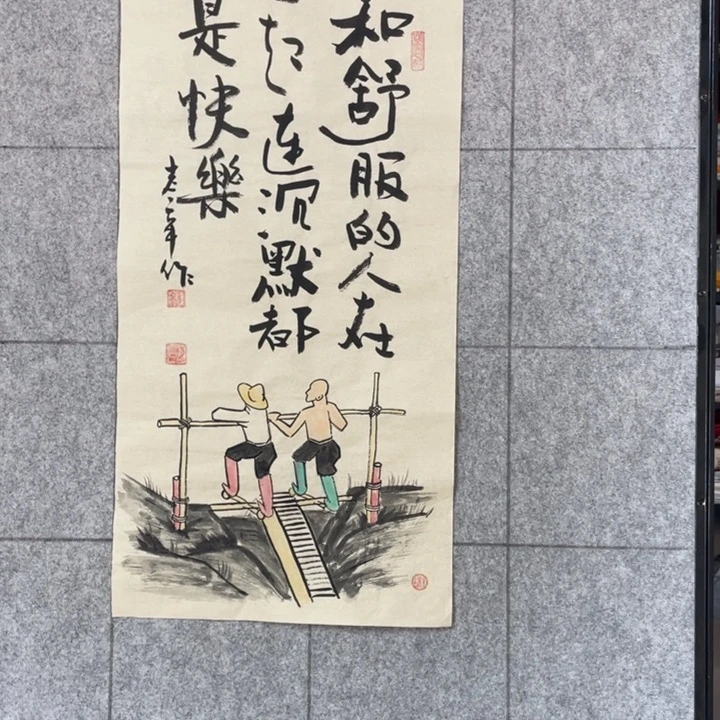 和舒服的人在
起連沉默都
是快樂
作